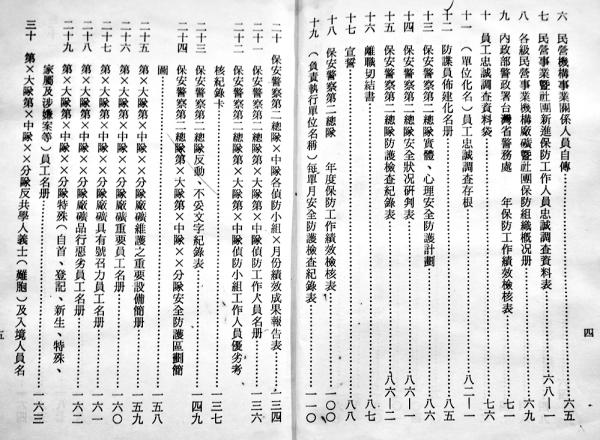 六　民營機構事業關係人員自傳⋯⋯六五
七　民營事業暨社團新進保防工作人員忠誠調查資料表⋯⋯六八—一
八　各級民營事業機構廠礦暨社團保防組織概况册⋯⋯六九
九　內政部警政署台灣省警務處　年保防工作績效檢核表⋯⋯七一
十　員工忠誠調查資料袋⋯⋯七六
十一　（單位化名）員工忠誠調查存根⋯⋯八二—一
十二　防諜員佈建化名册⋯⋯八五
十三　保安警察第二總隊實體、心理安全防護計劃⋯⋯八六
十四　保安警察第二總隊安全狀况研判表⋯⋯八六—一
十五　保安警察第二總隊防護檢查紀錄表⋯⋯八六—二
十六　離職切結書⋯⋯八七
十七　宣誓⋯⋯八八
十八　保安警察第二總隊　年度保防工作績效檢核表⋯⋯一〇〇
十九　（負責執行單位名稱）每單月安全防護檢查紀錄表⋯⋯一一〇
四
二十　保安警察第二總隊×中隊各偵防小組×月份績效成果報告表⋯⋯一三四
二十一　保安警察第二總隊第×大隊第×中隊偵防工作人員名册⋯⋯一三六
二十二　保安警察第二總隊第×大隊第×中隊偵防小組工作人員優劣考
核紀錄卡⋯⋯一三七
二十三　保安警察第二總隊反動、不妥文字紀錄表⋯⋯一四九
二十四　保安警察第二總隊第×大隊第×中隊××分隊安全防護區劃簡
圖⋯⋯一五八
二十五　第×大隊第×中隊××分隊廠礦維護之重要設備簡册⋯⋯一五九
二十六　第×大隊第×中隊××分隊廠礦重要員工名册⋯⋯一六〇
二十七　第×大隊第×中隊××分隊廠礦具有號召力員工名册⋯⋯一六一
二十八　第×大隊第×中隊××分隊廠礦品行惡劣員工名册⋯⋯一六二
二十九　第×大隊第×中隊××分隊特殊（自首、登記、新生、特殊、
家屬及涉嫌案等）員工名册⋯⋯一六三
三十　第×大隊第×中隊××分隊反共學人義士（難胞）及入境人員名
五